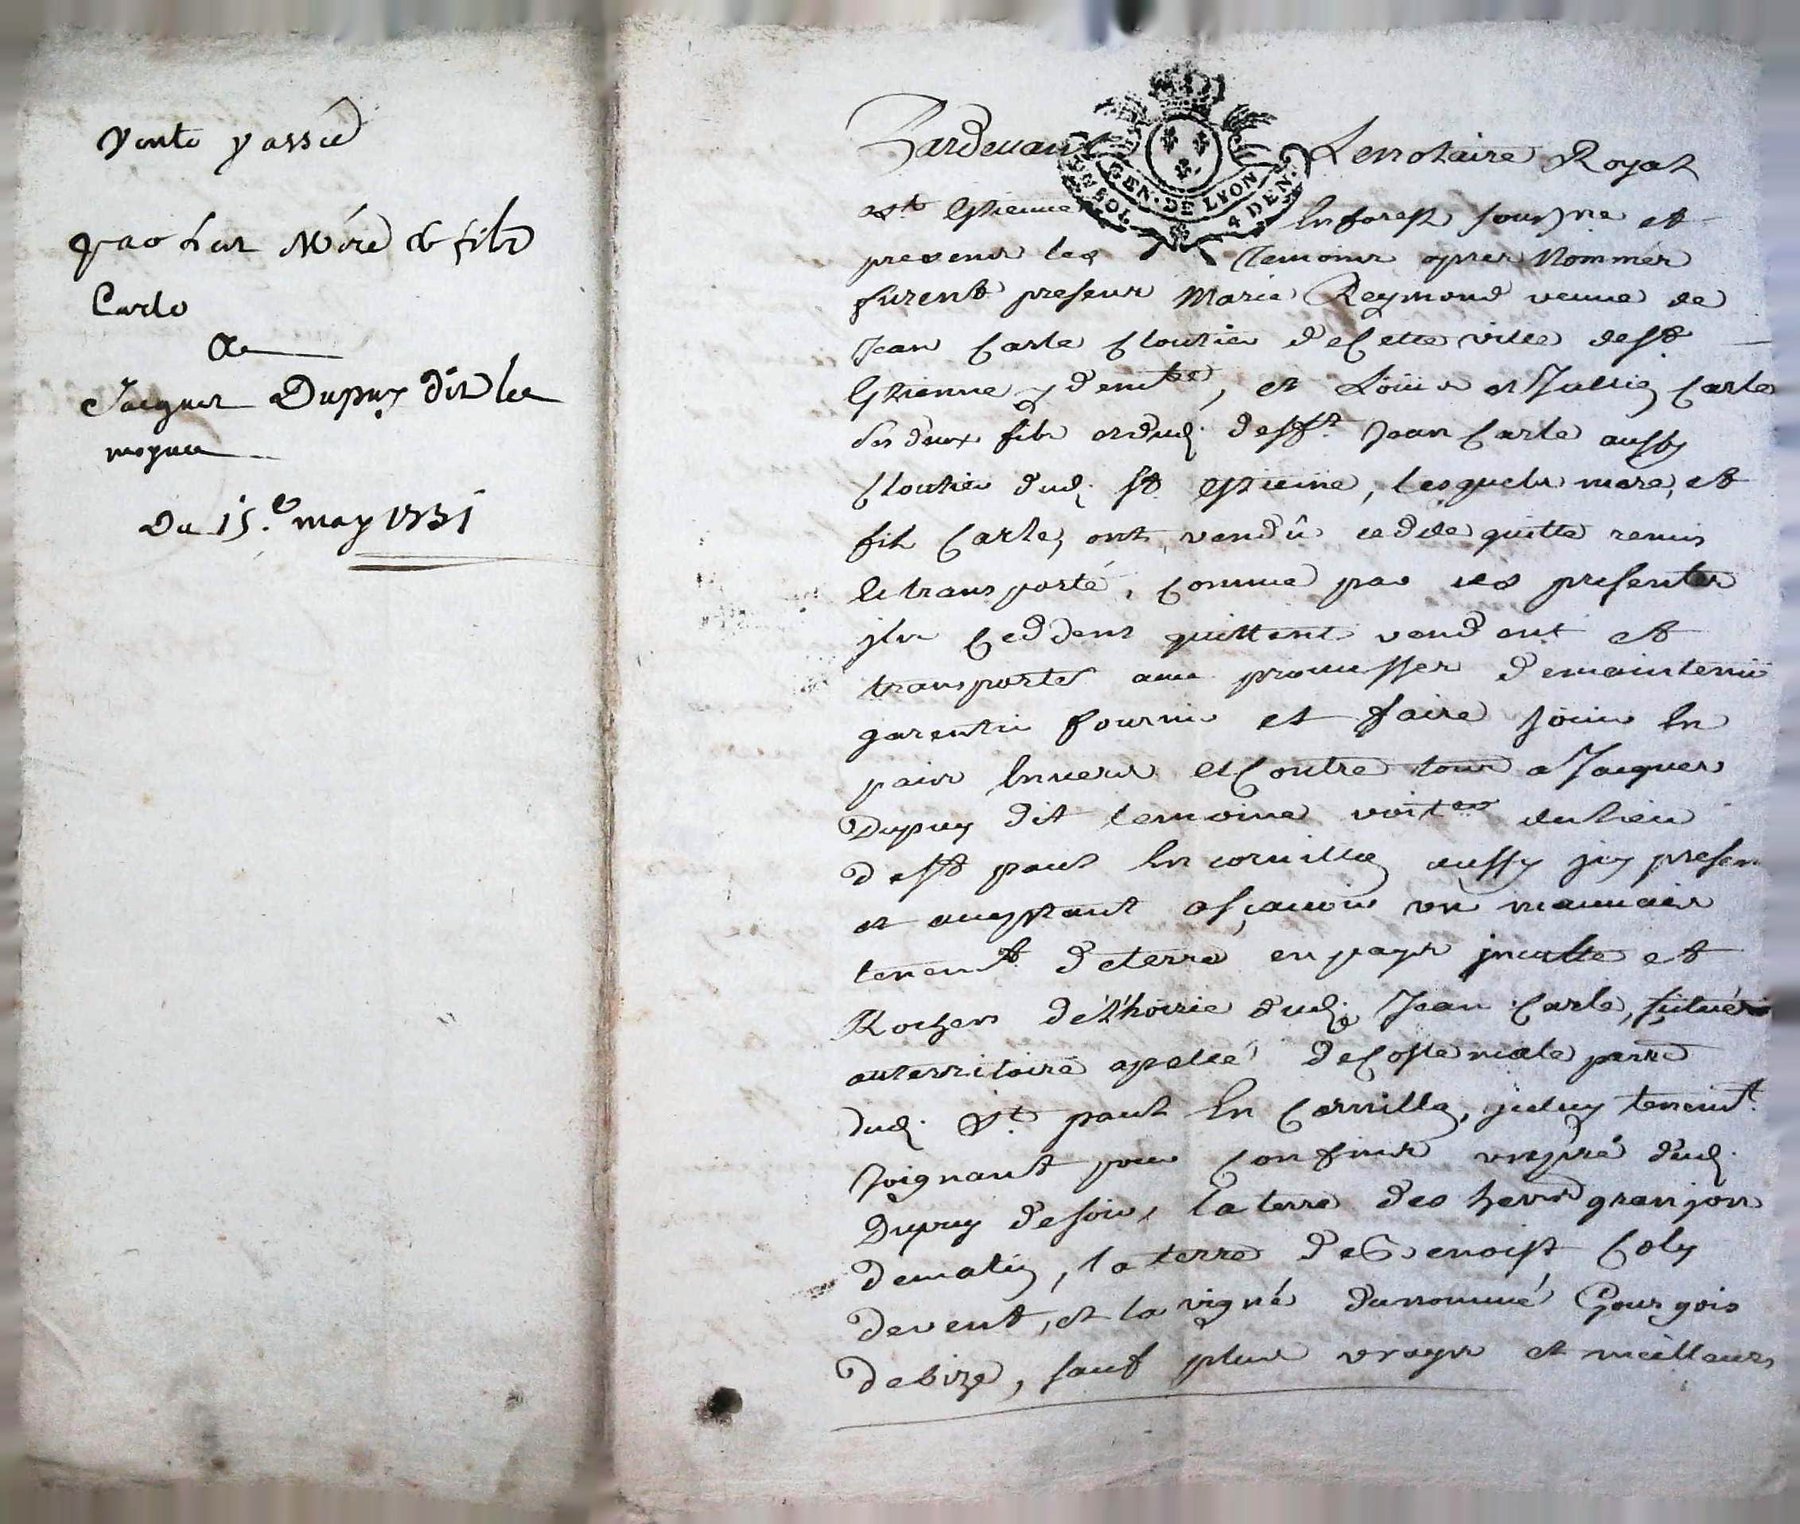 Vente passée
par les Mère & fils
Carle
A
Jacques Dupuy dit le
moyne
Du 15.e may 1731
Pardevant Le notaire Royal
GEN. DE LYON
4 DEN.
a St Estienne En forest soussigné et
presens les temoins apres Nommés
furent presens Marie Reymond veuve de
Jean Carle Cloutier de Cette ville de St
Estienne y demte, et Loüis et Jullien Carle
ses deux fils et dud. defft Jean Carle aussy
Cloutier dud. St Estienne, lesquels mere, et
fils Carle, ont vendû cedde quitte remis
et transporté, comme par ces presentes
ils Ceddent quittent vendent et
transportes avec promesses de maintenir
garentir fournir et faire joüir En
paix Envers et Contre tous a Jacques
Dupuy dit lemoine voitr du lieu
de St paul En cornillon aussy icy presen
et acceptant asçavoir un mauvais
tenemt de terre en pays inculte et
Rochers de l'hoirie dud. Jean Carle, situé
au territoire apellé de Coste male parroe
dud. St. paul En Cornillon, iceluy tenemt.
Joignant pour Confins un pré dud.
Dupuy de soir, la terre des hers granjon
de matin, la terre de Benoist Coly
de vent, et la vigne du nommé Gourgois
de bize, sauf plus vrays et meilleurs